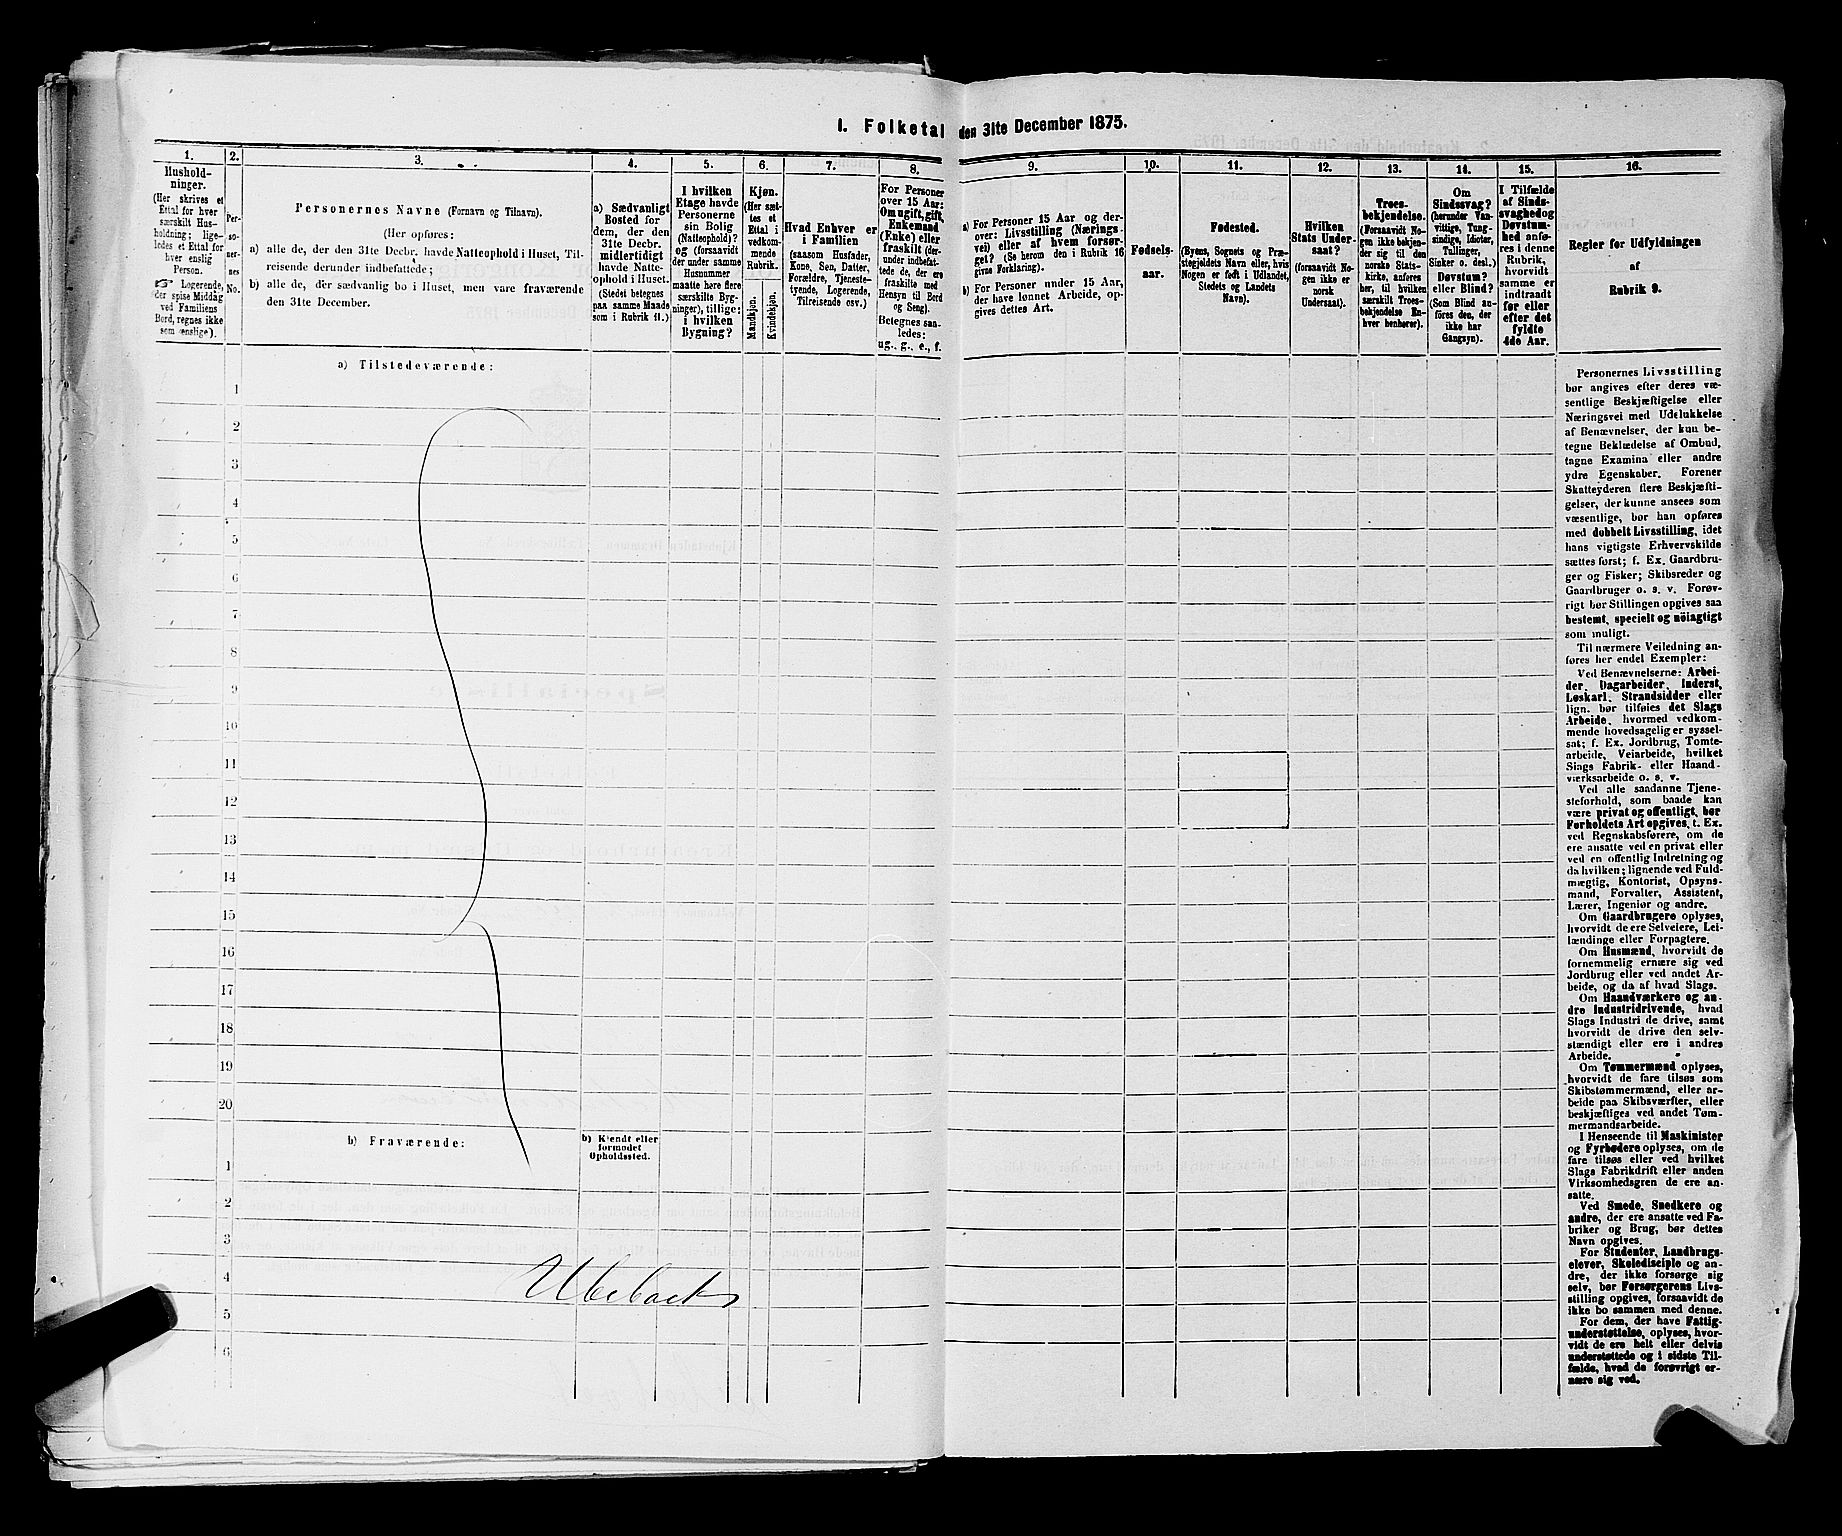 I. Folketal den 31te December 1875.
1.
Hushold-
ninger.
(Her skrives et
Ettal for hver
særskilt Hus-
holdning; lige-
ledes et Ettal for
hver enslig
Person.
☞ Logerende,
der spise Middag
ved Familiens
Bord, regnes ikke
som enslige).
2.
Per-
so-
ner-
nes
No.
3.
Personernes Navne (Fornavn og Tilnavn).
(Her opføres:
a) alle de, der den 31te Decbr. havde Natteophold i Huset, Til-
reisende derunder indbefattede;
b) alle de, der sædvanlig bo i Huset, men vare fraværende
den 31te December.
4.
a) Sædvanligt
Bosted for
dem, der den
31te Decbr.
midlertidigt
havde Natte-
ophold i Huset.
(Stedet betegnes
paa samme Maade
som i Rubrik 11.)
5.
I hvilken
Etage havde
Personerne
sin Bolig
(Natteophold)?
og (forsaavidt
der under samme
Husnummer
maatte here flere
særskilte Byg-
ninger), tillige:
i hvilken
Bygning?
6.
Kjøn.
(Her sæt-
tes et
Ettal i
vedkom-
mende
Rubrik.
Mandkjøn.
Kvindekjøn.
7.
Hvad Enhver er
i Familien
(saasom Husfader,
Kone, Søn, Datter,
Forældre, Tjeneste-
tyende, Logerende,
Tilreisende osv.)
8.
For Personer
over 15 Aar:
Om ugift, gift,
Enkemand
(Enke) eller
fraskilt (der-
under indbefat-
tede de, der ere
fraskilte med
Hensyn til Bord
og Seng).
Betegnes saa-
ledes:
ug., g., e., f.
9.
a) For Personer 15 Aar og der-
over: Livsstilling (Nærings-
vei) eller af hvem forsør-
get? (Se herom den i Rubrik 16
givne Forklaring).
b) For Personer under 15 Aar,
der have lønnet Arbeide, op-
gives dettes Art.
10.
Fødsels-
aar.
11.
Fødested.
(Byens, Sognets og Præ-
stegjeldets Navn eller, hvis
Nogen er født i Udlandet,
Stedets og Landets
Navn).
12.
Hvilken
Stats Under-
saat?
(forsaavidt No-
gen ikke er
norsk
Undersaat).
13.
Troes-
bekjendelse.
(Forsaavidt No-
gen ikke bekjen-
der sig til den
norske Stats-
kirke, anføres
her, til hvilken
særskilt Troes-
bekjendelse En-
hver henhører).
14.
Om
Sindssvag?
(herunder Van-
vittige, Tung-
sindige, Idioter,
Tullinger,
Sinker o. desl.)
Døvstum?
eller Blind?
(Som Blind an-
føres den, der
ikke har
Gangsyn).
15.
I Tilfælde
af Sinds-
svaghed og
Døvstum-
hed anfø-
res i denne
Rubrik,
hvorvidt
samme er
indtraadt
før eller
efter det
fyldte
4de Aar.
16.
Regler for Udfyldningen
af
Rubrik 9.
a) Tilstedeværende:
1
2
3
4
5
6
7
8
9
10
11
12
13
14
15
16
17
18
19
20
b) Fraværende:
b) Kjendt eller
formodet
Opholdssted.
1
2
3
4
5
6
Ubeboet
Personernes Livsstilling
bør angives efter deres væ-
sentlige Beskjæftigelse eller
Næringsvei med Udelukkelse
af Benævnelser, der kun be-
tegne Beklædelse af Ombud,
tagne Examina eller andre
ydre Egenskaber. Forener
Skatteyderen flere Beskjæfti-
gelser, der kunne ansees som
væsentlige, bør han opføres
med dobbelt Livsstilling, idet
hans vigtigste Erhvervskilde
sættes først; f. Ex. Gaardbru-
ger og Fisker; Skibsreder og
Gaardbruger o. s. v. Forøv-
rigt bør Stillingen opgives saa
bestemt, specielt og nöiagtigt
som muligt.
Til nærmere Veiledning an-
føres her endel Exempler:
Ved Benævnelserne: Arbei-
der, Dagarbeider, Inderst,
Løskarl, Strandsidder eller
lign. bør tilføies det Slags
Arbeide, hvormed vedkom-
mende hovedsagelig er syssel-
sat; f. Ex. Jordbrug, Tomte-
arbeide, Veiarbeide, hvilket
Slags Fabrik- eller Haand-
værksarbeide o. s. v.
Ved alle saadanne Tjene-
steforhold, som baade kan
være privat og offentligt, bør
Forholdets Art opgives, t. Ex.
ved Regnskabsførere, om de
ere ansatte ved en privat eller
ved en offentlig Indretning og
da hvilken; lignende ved Fuld-
mægtig, Kontorist, Opsyns-
mand, Forvalter, Assistent,
Lærer, Ingeniør og andre.
Om Gaardbrugere oplyses,
hvorvidt de ere Selveiere, Lei-
lændinge eller Forpagtere.
Om Husmænd, hvorvidt de
fornemmelig ernære sig ved
Jordbrug eller ved andet Ar-
beide, og da af hvad Slags.
Om Haandværkere og an-
dre Industridrivende, hvad
Slags Industri de drive, samt
hvorvidt de drive den selv-
stændigt eller ere i andres
Arbeide.
Om Tømmermænd oplyses,
hvorvidt de fare tilsøs som
Skibstømmermænd, eller ar-
beide paa Skibsværfter, eller
beskjæftiges ved andet Tøm-
mermandsarbeide.
I Henseende til Maskinister
og Fyrbødere oplyses, om de
fare tilsøs eller ved hvilket
Slags Fabrikdrift eller anden
Virksomhedsgren de ere an-
satte.
Ved Smede, Snedkere og
andre, der ere ansatte ved Fa-
briker og Brug, bør dettes
Navn opgives.
For Studenter, Landbrugs-
elever, Skoledisciple og an-
dre, der ikke forsørge sig
selv, bør Forsørgerens Livs-
stilling opgives, forsaavidt de
ikke bo sammen med denne.
For dem, der have Fattig-
understøttelse, oplyses, hvor-
vidt de ere helt eller delvis
understøttede og i sidste Til-
fælde, hvad de forøvrigt er-
nære sig ved.